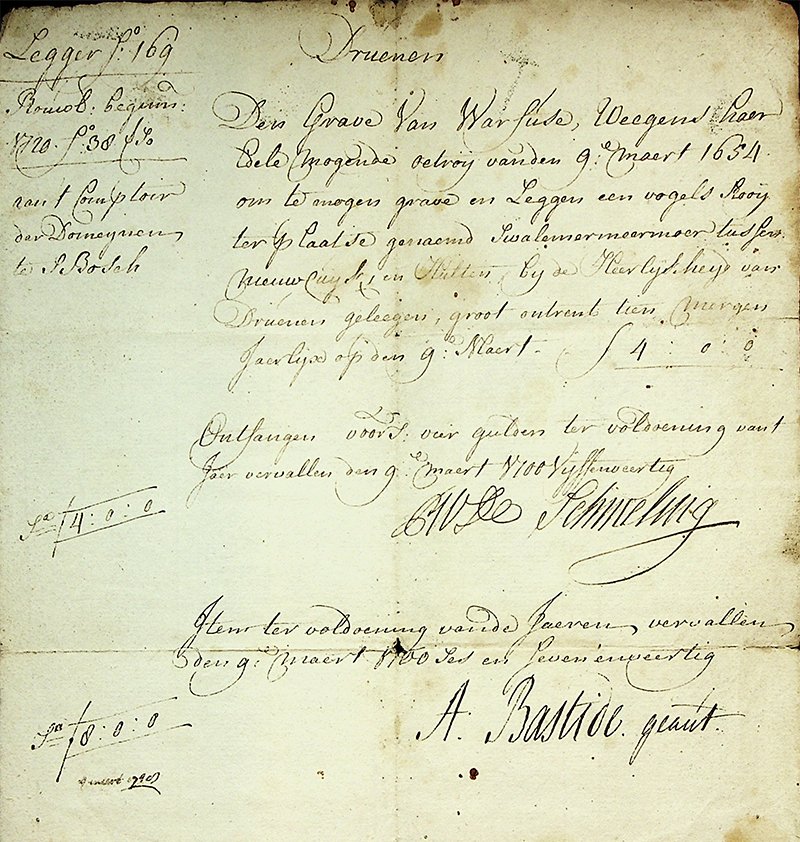 Legger fo. 169
Druenen
Romb: beginn:
1720 fo: 38 
aant Comptoir
der Domeynen
te S Bosch
Den Grave Van Warfuse, Weegens haer
Edele Mogende octroy vanden 9e maert 1654
om te mogen grave en Leggen een vogels Kooy
ter plaatse genaemd Swalemermeermoer tussen
nieuwcuyk, en Hulten, bij de Heerlijkheyd van
Druenen geleegen, groot ontrent tien mergen
Jaerlijx op den 9e Maert. f 4 : 0 : 0
Ontfangen voors: vier gulden ter voldoening vant
Jaer vervallen den 9e maert 1700 Vyffenveertig
Sa f 4 : 0 : 0
Schmeling
Item ter voldoening vande Jaeren vervallen
den 9e maert 1700 Ses en Seven'enveertig
A. Bastide. geaut.
Sa f 8 : 0 : 0
9 meert